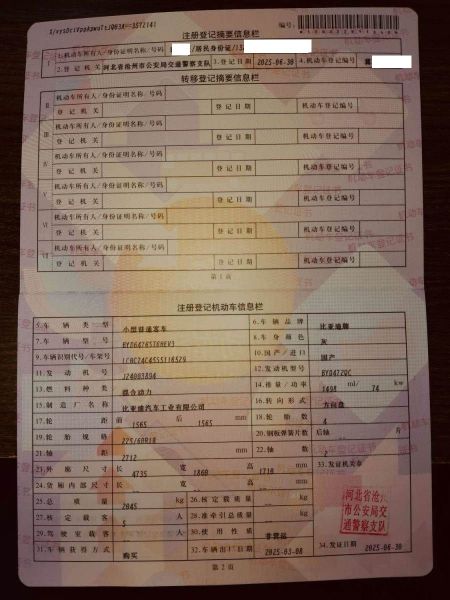 注册登记摘要信息栏
编号:
1.机动车所有人/身份证明名称/号码 /居民身份证/13
2.登记机关 河北省沧州市公安局交通警察支队 3.登记日期 2025-06-30 4.机动车登记编号
转移登记摘要信息栏
II 机动车所有人/身份证明名称/号码
登记机关 登记日期 机动车登记编号
III 机动车所有人/身份证明名称/号码
登记机关 登记日期 机动车登记编号
IV 机动车所有人/身份证明名称/号码
登记机关 登记日期 机动车登记编号
V 机动车所有人/身份证明名称/号码
登记机关 登记日期 机动车登记编号
VI 机动车所有人/身份证明名称/号码
登记机关 登记日期 机动车登记编号
VII 机动车所有人/身份证明名称/号码
登记机关 登记日期 机动车登记编号
第1页
注册登记机动车信息栏
5.车辆类型 小型普通客车 6.车辆品牌 比亚迪牌
7.车辆型号 8.车身颜色 灰
9.车辆识别代号/车架号 10.国产/进口 国产
11.发动机号 12.发动机型号 BYD472QC
13.燃料种类 混合动力 14.排量/功率 1498 ml/ 74 kw
15.制造厂名称 比亚迪汽车工业有限公司 16.转向形式 方向盘
17.轮距 前 1565 后 1565 mm 18.轮胎数 4
19.轮胎规格 225/60R18 20.钢板弹簧片数 后轴 片
21.轴距 2712 mm 22.轴数 2
23.外廓尺寸 长 4735 宽 1860 高 1710 mm 33.发证机关章
24.货厢内部尺寸 长 宽 高 mm
25.总质量 2045 kg 26.核定载质量 kg
27.核定载客 5 人 28.准牵引总质量 kg
29.驾驶室载客 人 30.使用性质 非营运
31.车辆获得方式 购买 32.车辆出厂日期 2025-03-08 34.发证日期 2025-06-30
河北省沧州
市公安局交
通警察支队
第2页